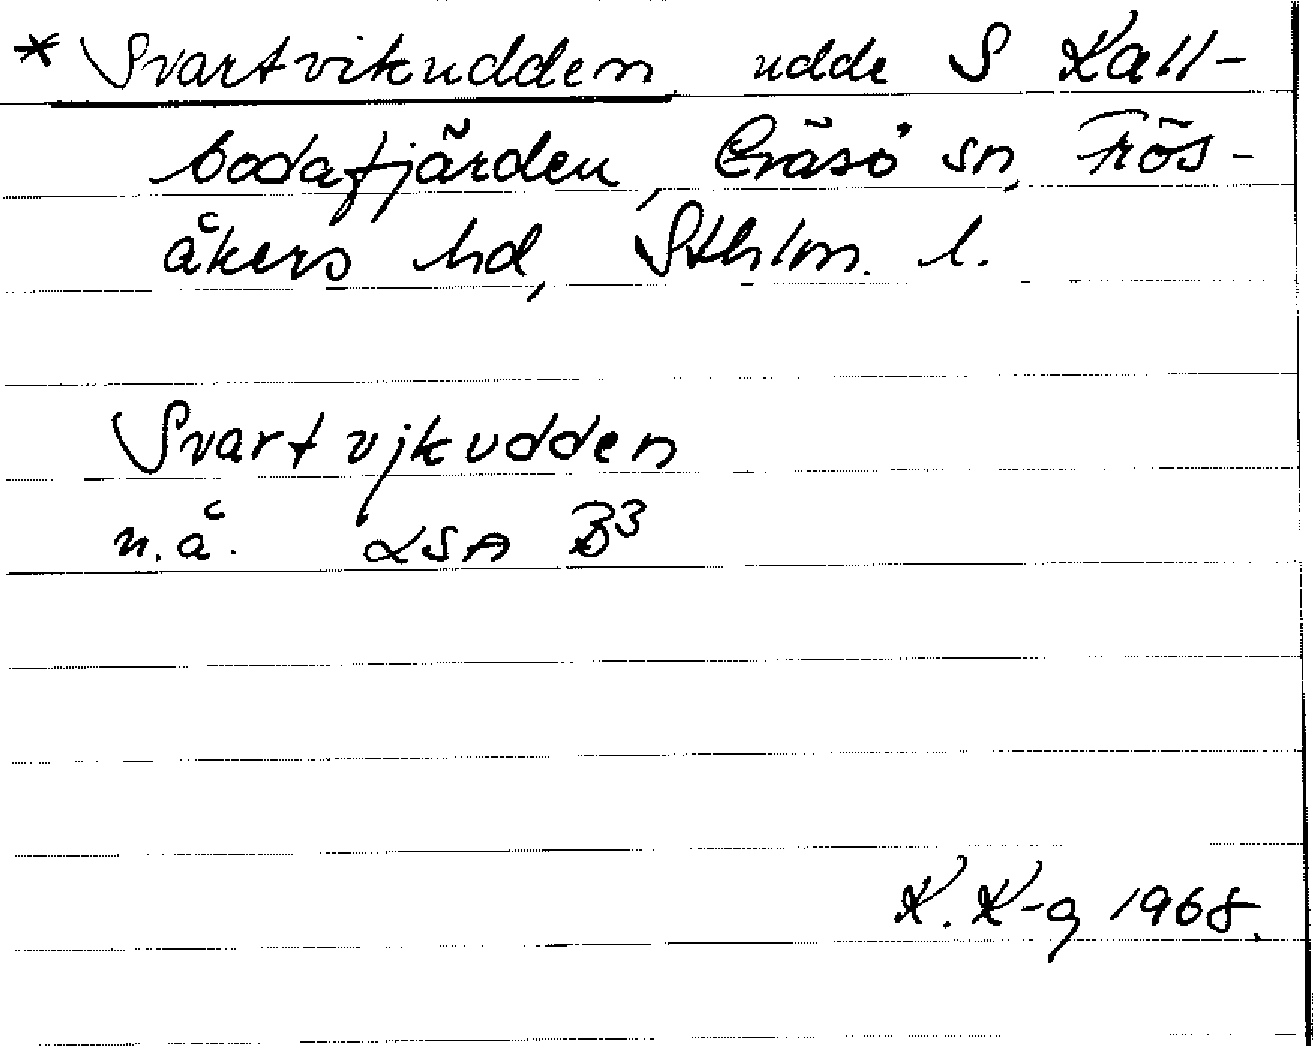 * Svartvikudden, udde S Kall-
bodafjärden, Gräsö sn, Frös-
åkers hd, Sthlm. l.
Svartvjkudden
n.å. LSA B3
K. K-g 1968.